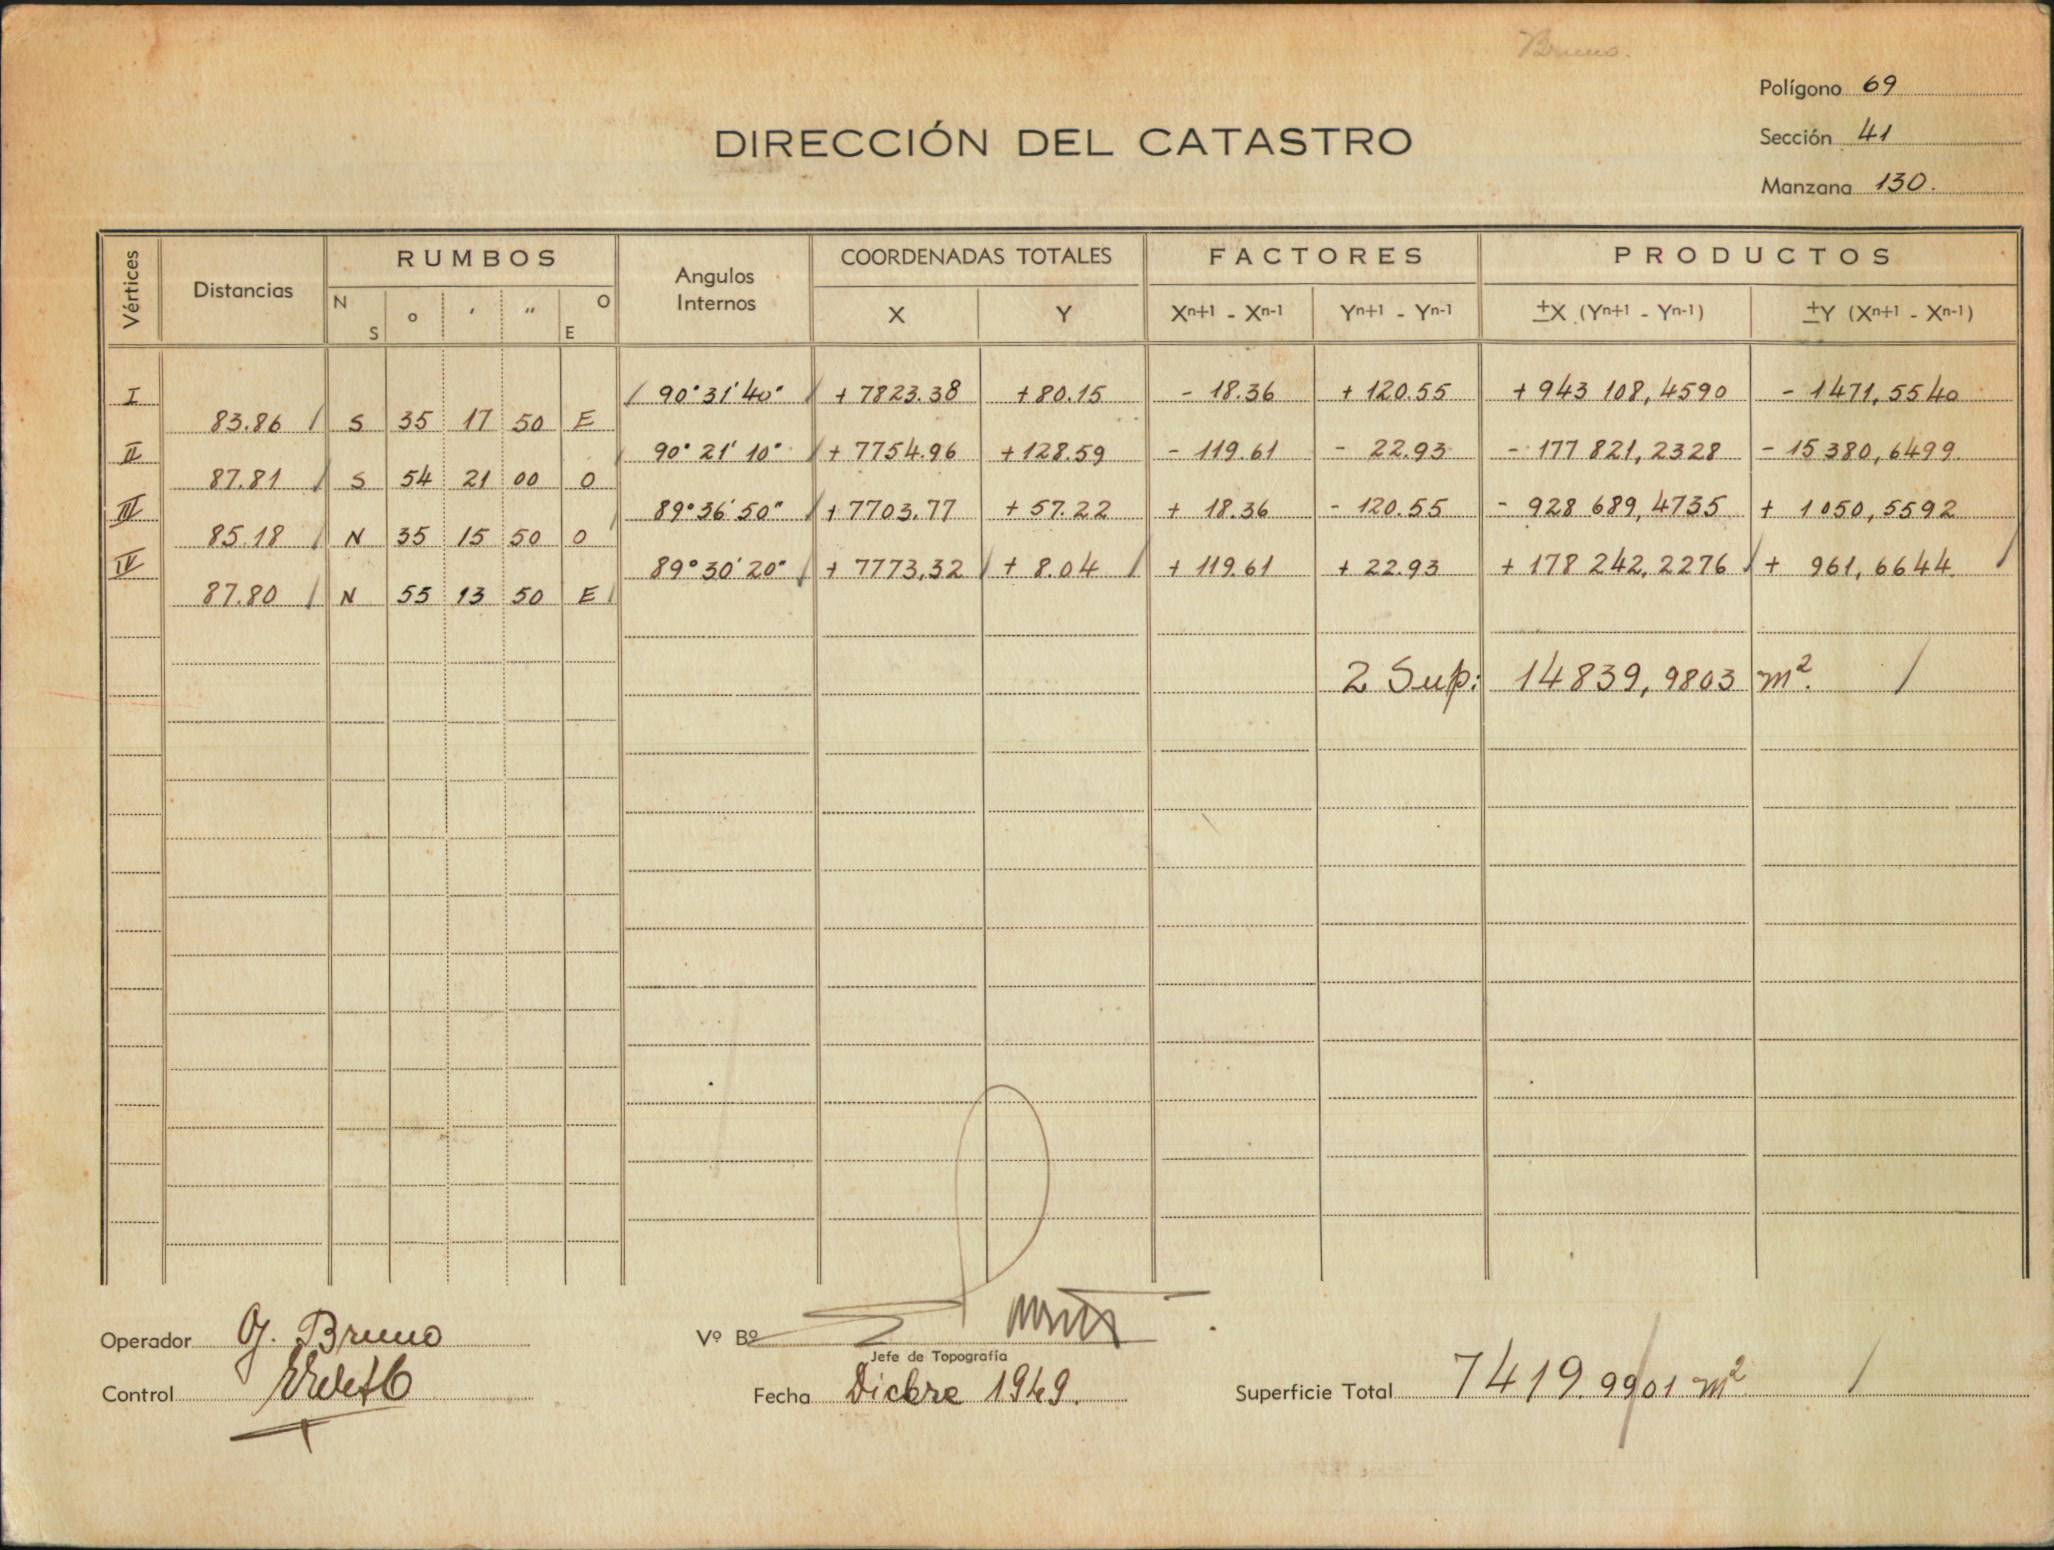 Bruno.
Polígono 69
DIRECCIÓN DEL CATASTRO
Sección 41
Manzana 130.
Vértices Distancias RUMBOS Angulos Internos COORDENADAS TOTALES FACTORES PRODUCTOS
N S o ' " O E X Y Xn+1 - Xn-1 Yn+1 - Yn-1 ±X (Yn+1 - Yn-1) ±Y (Xn+1 - Xn-1)
I 90° 31' 40" + 7823.38 + 80.15 - 18.36 + 120.55 + 943 108,4590 - 1471,5540
83.86 S 35 17 50 E
II 90° 21' 10" + 7754.96 + 128.59 - 119.61 - 22.93 - 177 821,2328 - 15 380,6499
87.81 S 54 21 00 O
III 89° 36' 50" + 7703.77 + 57.22 + 18.36 - 120.55 - 928 689,4735 + 1050,5592
85.18 N 35 15 50 O
IV 89° 30' 20" + 7773,32 + 8.04 + 119.61 + 22.93 + 178 242,2276 + 961,6644
87.80 N 55 13 50 E
2 Sup: 14839,9803 m².
Operador Bruno
Vº Bº
Jefe de Topografía
Control
Fecha Dicbre 1949.
Superficie Total 7419.9901 m²